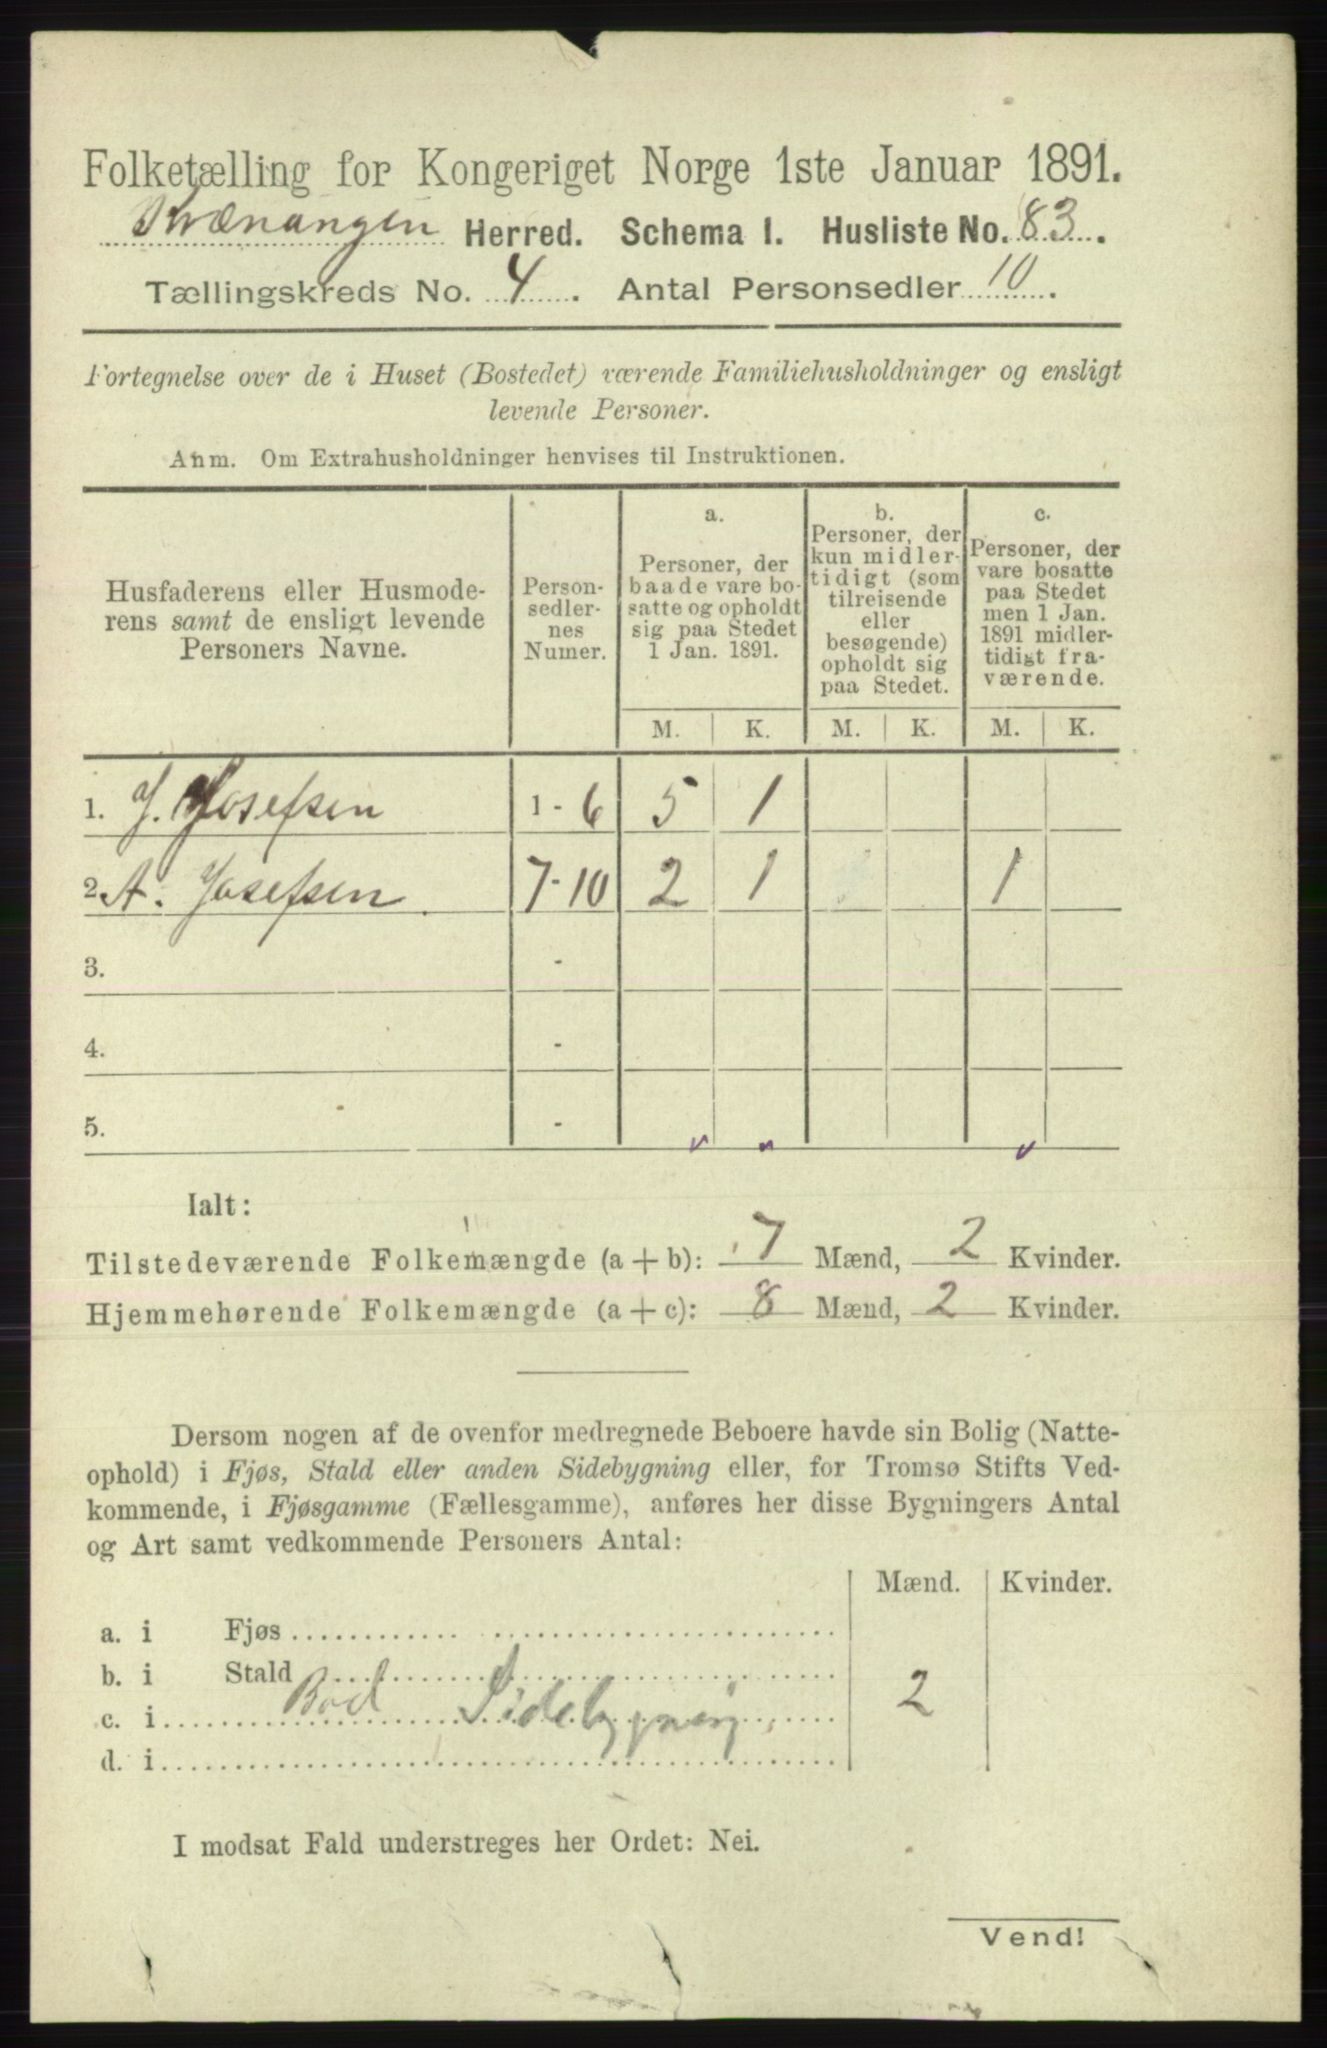 Folketælling for Kongeriget Norge 1ste Januar 1891.
Kvænangen Herred. Schema I. Husliste No. 83.
Tællingskreds No. 4. Antal Personsedler 10.
Fortegnelse over de i Huset (Bostedet) værende Familiehusholdninger og ensligt
levende Personer.
Anm. Om Extrahusholdninger henvises til Instruktionen.
Husfaderens eller Husmode-
rens samt de ensligt levende
Personers Navne.
Person-
sedler-
nes
Numer.
a.
Personer, der
baade vare bo-
satte og opholdt
sig paa Stedet
1 Jan. 1891.
b.
Personer, der
kun midler-
tidigt (som
tilreisende
eller
besøgende)
opholdt sig
paa Stedet.
c.
Personer, der
vare bosatte
paa Stedet
men 1 Jan.
1891 midler-
tidigt fra-
værende.
M. K. M. K. M. K.
1. J. Josefsen 1 - 6 5 1
2. A. Josefsen 7-10 2 1 1
3. -
4. -
5. -
Ialt:
Tilstedeværende Folkemængde (a + b): 7 Mænd, 2 Kvinder.
Hjemmehørende Folkemængde (a + c): 8 Mænd, 2 Kvinder.
Dersom nogen af de ovenfor medregnede Beboere havde sin Bolig (Natte-
ophold) i Fjøs, Stald eller anden Sidebygning eller, for Tromsø Stifts Ved-
kommende, i Fjøsgamme (Fællesgamme), anføres her disse Bygningers Antal
og Art samt vedkommende Personers Antal:
Mænd. Kvinder.
a. i Fjøs
b. i Stald
c. i Bod Sidebygning 2
d. i
I modsat Fald understreges her Ordet: Nei.
Vend!